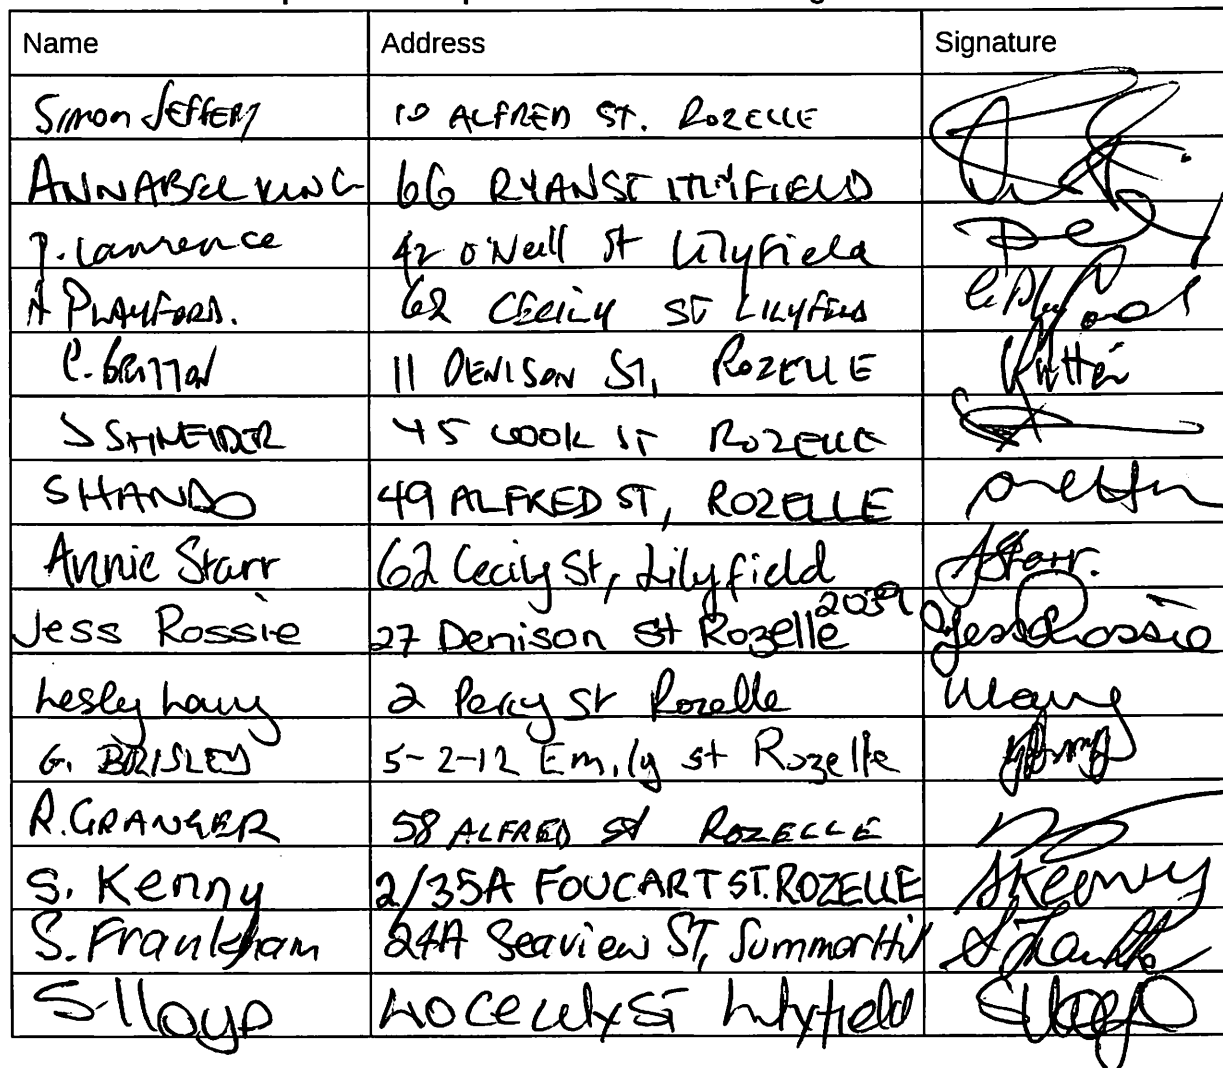 Name Address Signature
Simon JEFFERY 10 ALFRED ST. ROZELLE
ANNABEL KING 66 RYAN ST LILYFIELD
J. Lawrence 42 O'Neill St Lilyfield
A PLAYFORD. 62 CECILY ST LILYFIELD
C. BRITTON 11 DENISON ST, ROZELLE Britton
J SHNEIDER 45 COOK ST ROZELLE
SHAND 49 ALFRED ST, ROZELLE
Annie Starr 62 Cecily St, Lilyfield AStarr.
Jess Rossie 27 Denison St Rozelle 2039 Jess Rossie
Lesley 2 Percy St Rozelle
G. BRISLEY 5-2-12 Emily st Rozelle
R. GRANGER 58 ALFRED St ROZELLE
S. Kenny 2/35A FOUCART ST. ROZELLE SKenny
S. Frankham 24A Seaview ST, Summer Hill
S Lloyd 40 Cecily St Lilyfield